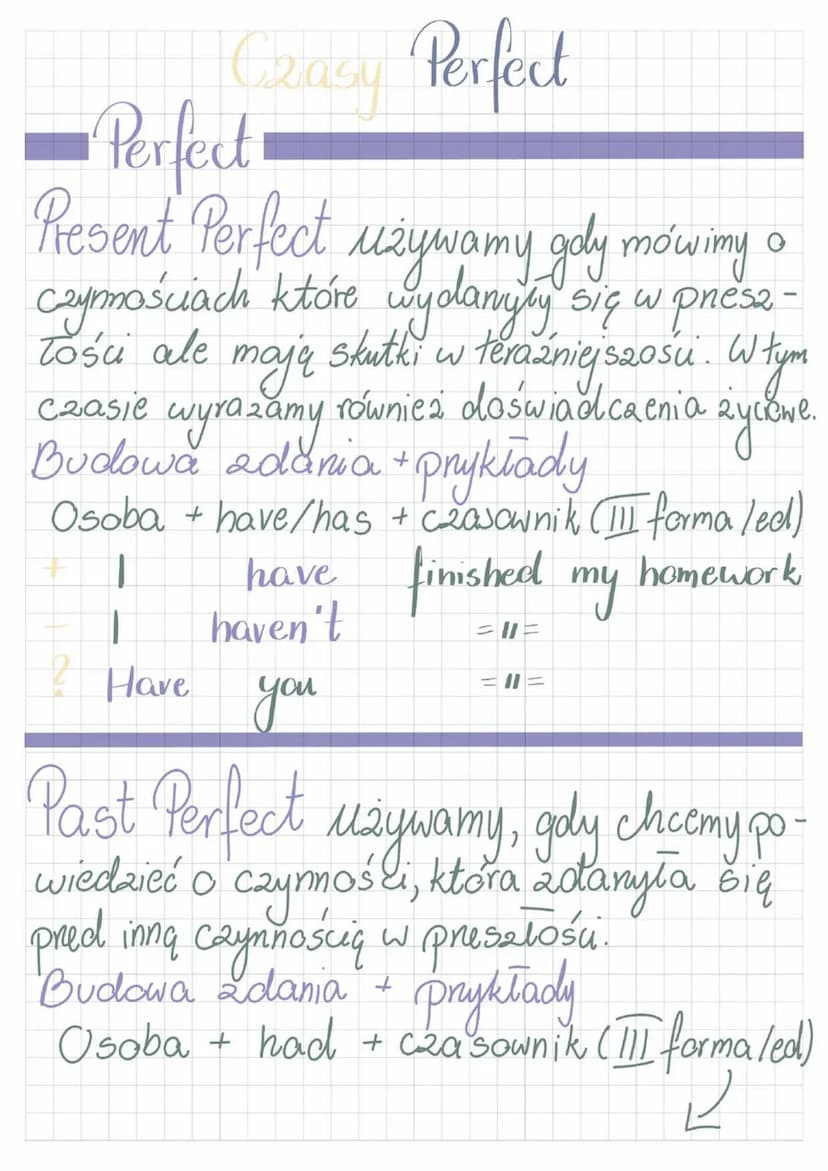 Czasy Perfect
Perfect
Present Perfect używamy gdy mówimy o
czynnościach które wydarzyły się w przesz-
łości ale mają skutki w teraźniejszości. W tym
czasie wyrażamy również doświadczenia życiowe.
Budowa zdania + przykłady
Osoba + have/has + czasownik (III forma/ed)
+ I have finished my homework
- I haven't =11=
? Have you =11=
Past Perfect używamy, gdy chcemy po-
wiedzieć o czynności, która zdarzyła się
przed inną czynnością w przeszłości.
Budowa zdania + przykłady
Osoba + had + czasownik (III forma/ed)